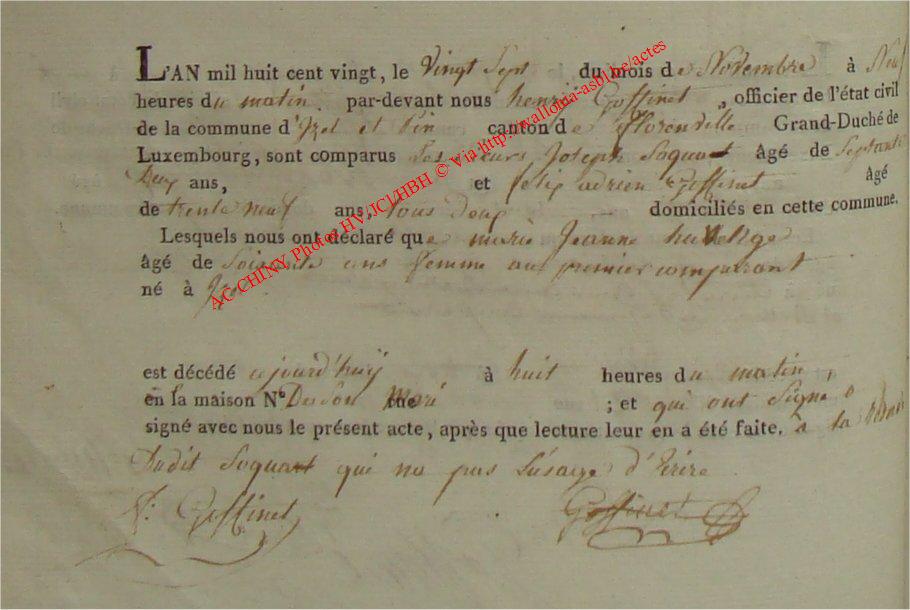 L'AN mil huit cent vingt, le Vingt Sept du mois de Novembre à Neuf
heures du matin par-devant nous henri Goffinet, officier de l'état civil
de la commune d'Izel et Pin canton de florenville Grand-Duché de
Luxembourg, sont comparus Les sieurs Joseph Soquet âgé de Septante
Deux ans, et felix adrien Goffinet âgé
de trente neuf ans, tous deux domiciliés en cette commune.
Lesquels nous ont déclaré que marie Jeanne
âgé de Soixante ans femme au premier comparant
né à Izel
est décédé ajourd'huy à huit heures du matin,
en la maison No De Son mari ; et qui ont Signe
signé avec nous le présent acte, après que lecture leur en a été faite. à la
Dudit Soquet qui na pas L'usage d'Ecrire
f. Goffinet Goffinet
AC CHINY Photos HV/JCl/HBH © Via http://wallonia-asbl.be/actes